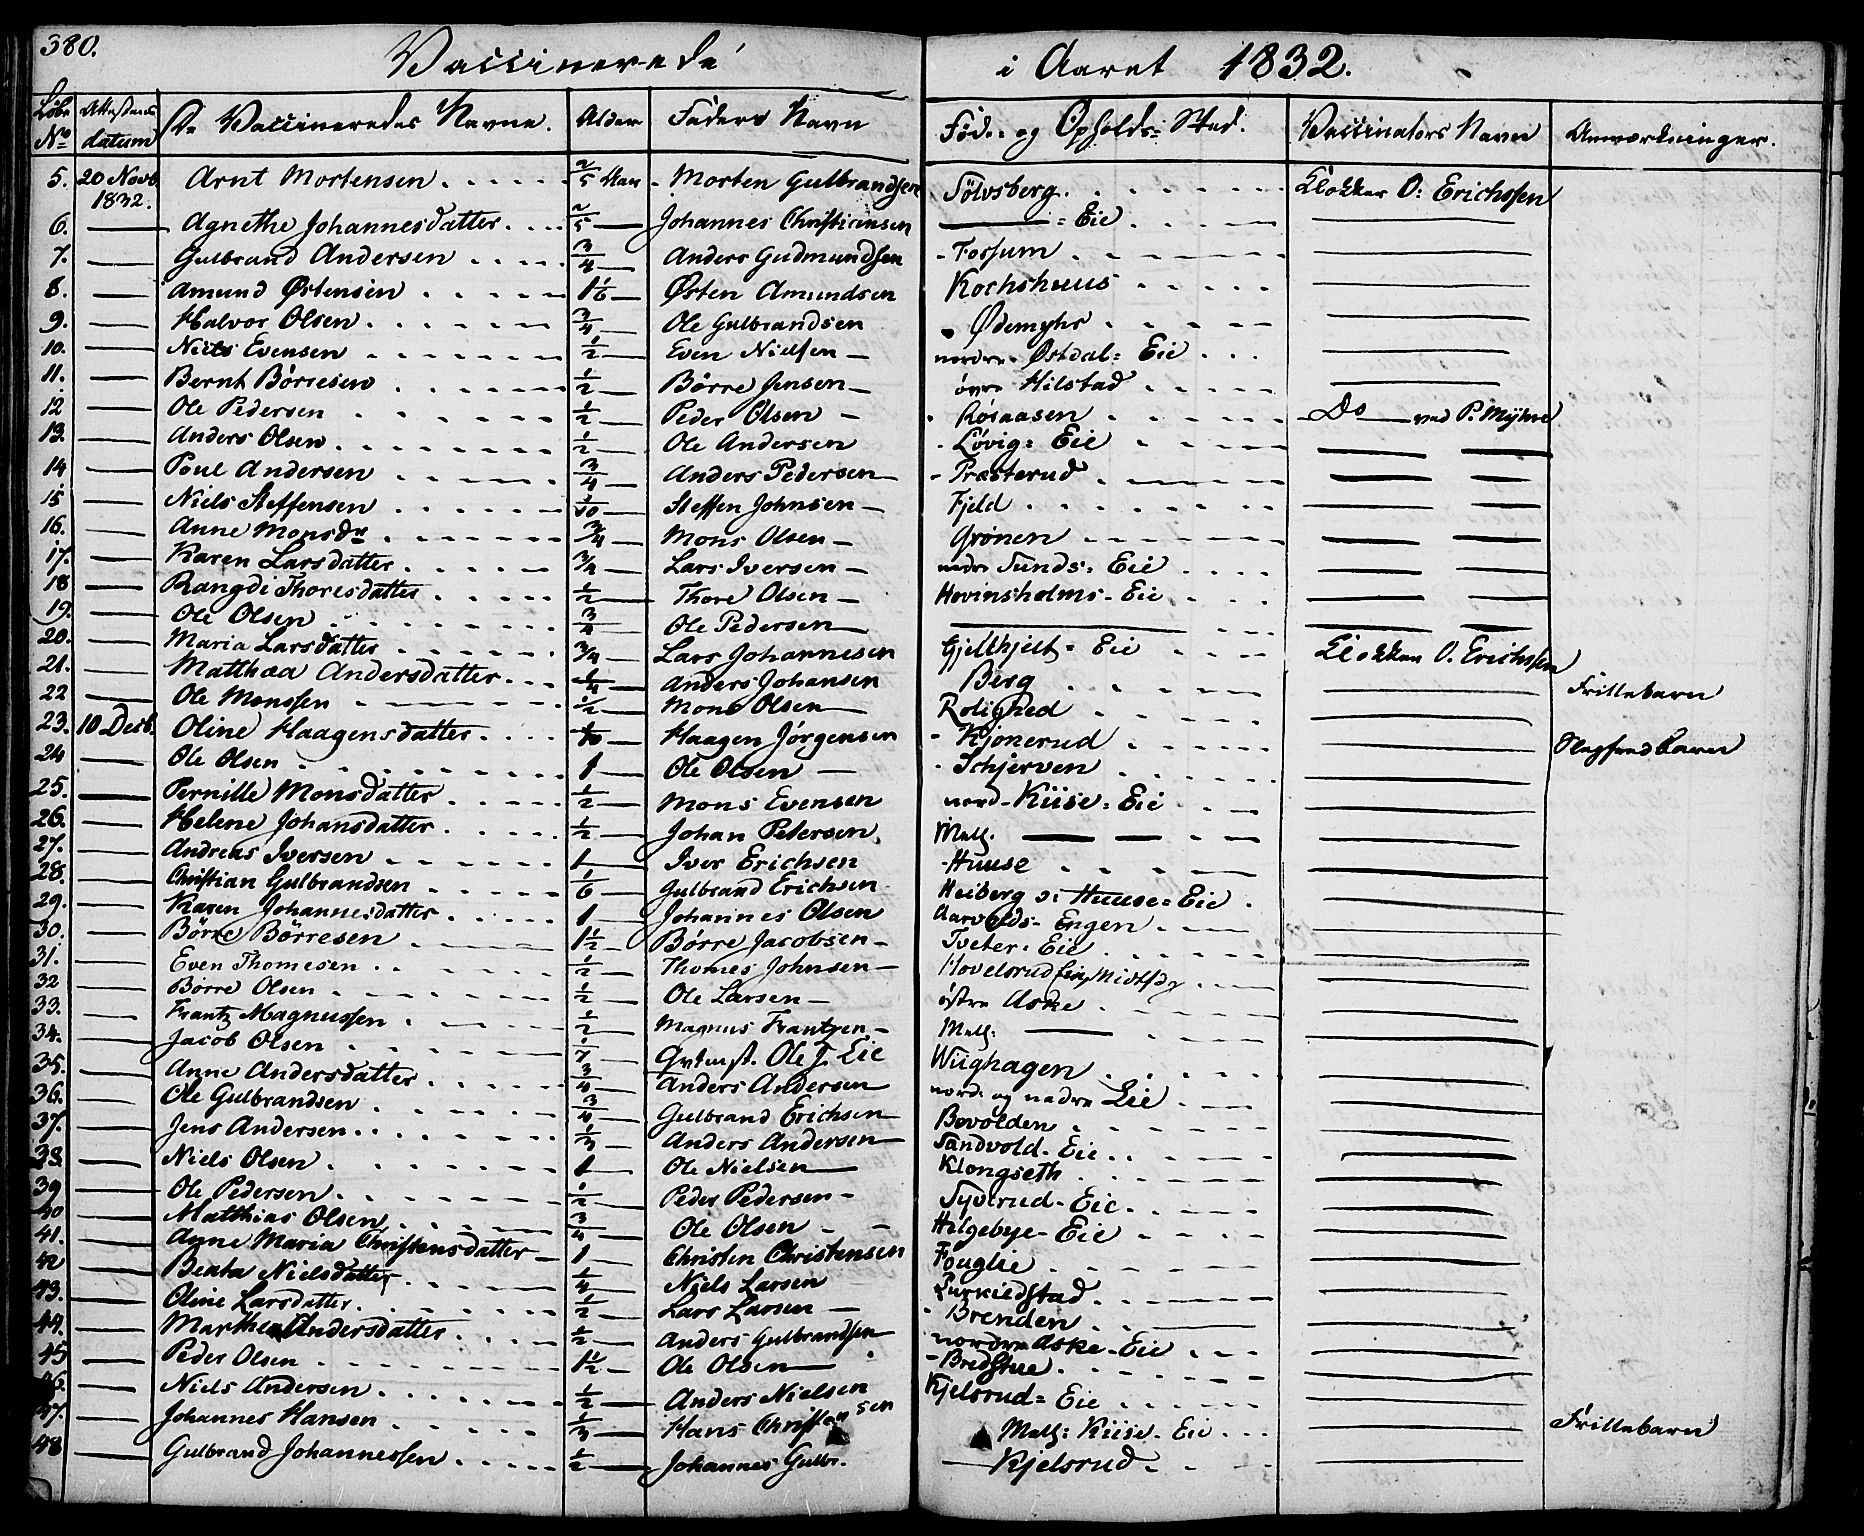 380. Vaccinerede i Aaret 1832.
Løbe No Attestens datum De Vaccineredes Navne. Alder Faders Navn Føde- og Opholds-Sted. Vaccinators Navn Anmærkninger.
5. 20 Novb. 1832. Arnt Mortensen 2/5 Aar Morten Gulbrandsen Sölvsberg. Klokker O: Erichssen
6. — Agnethe Johannesdatter 2/5 — Johannes Christiansen — = Eie —
7. — Gulbrand Andersen 3/4 — Anders Gudmundsen Fossum —
8. — Amund Østensen 1 1/6 — Østen Amundsen Kochshuus —
9. — Halvor Olsen 3/4 — Ole Gulbrandsen Ødemyhr —
10. — Niels Evensen 1/2 — Even Nielsen nordre Østdal= Eie —
11. — Bernt Börresen 1/2 — Börre Jensen övre Hilstad —
12 — Ole Pedersen 1/2 — Peder Olsen Rösaasen Do — ved P. Myhre
13. — Anders Olsen 1/2 — Ole Andersen Lövig= Eie — —
14 — Poul Andersen 3/4 — Anders Pedersen Præsterud — —
15 — Niels Steffensen 1/10 — Steffen Johnsen Fjeld — —
16. — Anne Monsdr 3/4 — Mons Olsen Grönen — —
17. — Karen Larsdatter 3/4 — Lars Iversen nedre Sunds= Eie — —
18 — Rangdi Thoresdatter 1/2 — Thore Olsen Hovinsholms- Eie — —
19. — Ole Olsen 3/4 — Ole Pedersen — — —
20. — Maria Larsdatter 3/4 — Lars Johannesen Gjelthjelt= Eie Klokker O. Erichssen
21. — Matthæa Andersdatter 1/4 — Anders Johansen Berg — Frillebarn
22 — Ole Monssen 1/2 — Mons Olsen Rolighed —
23. 10 Decb. Oline Haagensdatter 1/10 — Haagen Jörgensen Kjönerud — Slegfredbarn
24 — Ole Olsen 1 — Ole Olsen Schjerven —
25. — Pernille Monsdatter 1/2 — Mons Evensen nord- Kiise= Eie —
26. — Helene Johansdatter 1/2 — Johan Petersen Mell. — — —
27. — Andreas Iversen 1 — Iver Erichsen Huuse —
28. — Christian Gulbrandsen 1/6 — Gulbrand Erichsen Heiberg o: Huuse= Eie —
29. — Karen Johannesdatter 1 — Johannes Olsen Aarvolds- Engen —
30. — Börre Börresen 1 1/2 — Börre Jacobsen Tveter= Eie —
31. — Even Thomesen 1/2 — Thomes Johnsen Hovelsrud —
32 — Börre Olsen 1/2 — Ole Larsen östre Aske —
33. — Frantz Magnussen 1/2 — Magnus Frantzen Mell: — —
34. — Jacob Olsen 1/7 — Ole J. Eie Wiighagen —
35. — Anne Andersdatter 3/4 — Anders Andersen nord. og nedre Lie —
36. — Ole Gulbrandsen 3/4 — Gulbrand Erichsen Bovolden —
37. — Jens Andersen 1/3 — Anders Andersen Sandvold- Eie —
38. — Niels Olsen 1 — Ole Nielsen Klongseth —
39 — Ole Pedersen 1/2 — Peder Pedersen Syverud- Eie —
40 — Matthias Olsen 3/4 — Ole Olsen Helgebye- Eie —
41. — Anne Maria Christensdatter 1 — Christen Christensen Fouglie —
42 — Beata Nielsdatter 1/4 — Niels Larsen —
43. — Oline Larsdatter 1/2 — Lars Larsen Brenden —
44. — Marthea Andersdatter 1/2 — Anders Gulbrandsen nordre Aske- Eie —
45 — Peder Olsen 1 1/2 — Ole Olsen Bredstue —
46. — Niels Andersen 1/2 — Anders Nielsen Kjelsrud= Eie —
47. — Johannes Hansen 1/3 — Hans Christensen Mell: Kiise- Eie — Frillebarn
48 — Gulbrand Johannessen 1/2 — Johannes Gulbr. Kjelsrud —